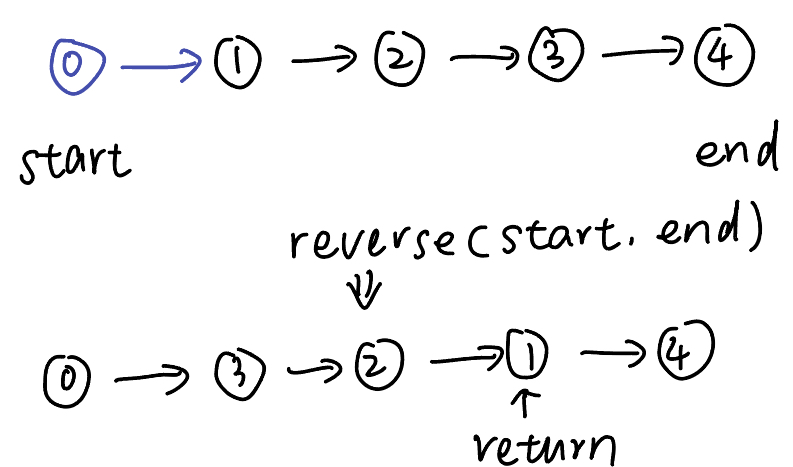 0 → 1 → 2 → 3 → 4
start end
reverse(start, end)
⇓
0 → 3 → 2 → 1 → 4
↑
return